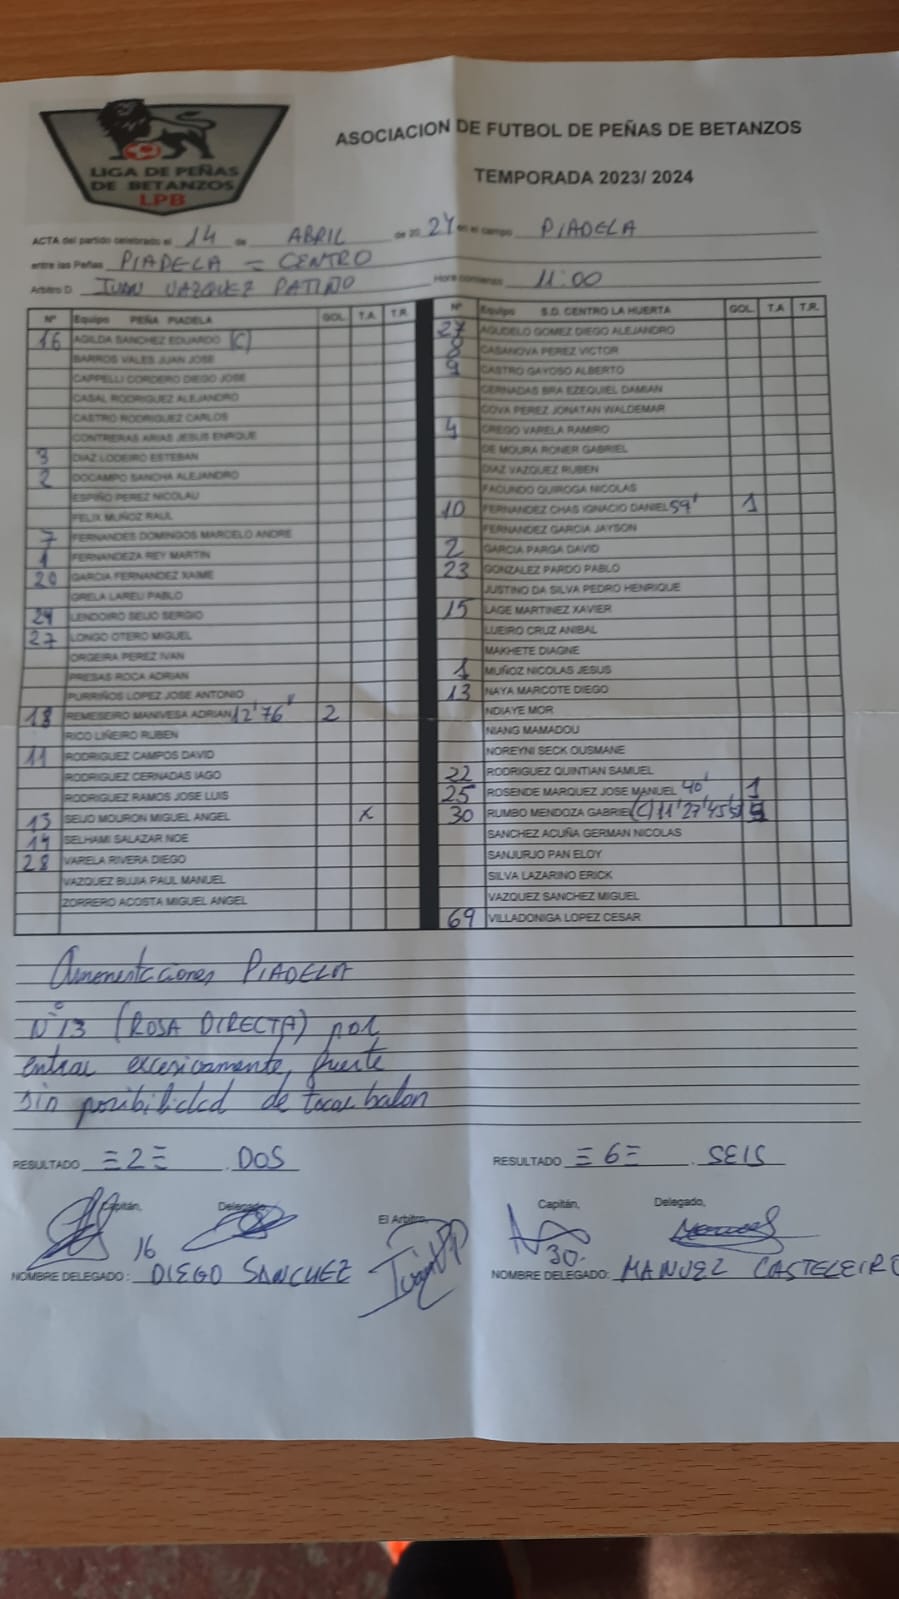 LIGA DE PEÑAS
DE BETANZOS
LPB
ASOCIACION DE FUTBOL DE PEÑAS DE BETANZOS
TEMPORADA 2023/ 2024
ACTA del partido celebrado el 14 de ABRIL de 2024 en el campo PIADELA
entre las Peñas PIADELA = CENTRO
Arbitro D. IVAN VAZQUEZ PATIÑO Hora comienzo 11:00
Nº Equipo PEÑA PIADELA GOL T.A. T.R.
16 AGILDA SANCHEZ EDUARDO (C)
BARROS VALES JUAN JOSE
CAPPELLI CORDERO DIEGO JOSE
CASAL RODRIGUEZ ALEJANDRO
CASTRO RODRIGUEZ CARLOS
CONTRERAS ARIAS JESUS ENRIQUE
3 DIAZ LODEIRO ESTEBAN
2 DOCAMPO SANCHA ALEJANDRO
ESPIÑO PEREZ NICOLAU
FELIX MUÑOZ RAUL
7 FERNANDES DOMINGOS MARCELO ANDRE
1 FERNANDEZA REY MARTIN
20 GARCIA FERNANDEZ XAIME
GRELA LAREU PABLO
24 LENDOIRO SEIJO SERGIO
27 LONGO OTERO MIGUEL
ORGEIRA PEREZ IVAN
PRESAS ROCA ADRIAN
PURRIÑOS LOPEZ JOSE ANTONIO
18 REMESEIRO MANIVESA ADRIAN 12' 76' 2
RICO LIÑEIRO RUBEN
11 RODRIGUEZ CAMPOS DAVID
RODRIGUEZ CERNADAS IAGO
RODRIGUEZ RAMOS JOSE LUIS
13 SEIJO MOURON MIGUEL ANGEL X
14 SELHAMI SALAZAR NOE
28 VARELA RIVERA DIEGO
VAZQUEZ BUJIA PAUL MANUEL
ZORRERO ACOSTA MIGUEL ANGEL
Nº Equipo S.D. CENTRO LA HUERTA GOL T.A T.R.
27 AGUDELO GOMEZ DIEGO ALEJANDRO
8 CASANOVA PEREZ VICTOR
9 CASTRO GAYOSO ALBERTO
CERNADAS BRA EZEQUIEL DAMIAN
COVA PEREZ JONATAN WALDEMAR
4 CREGO VARELA RAMIRO
DE MOURA RONER GABRIEL
DIAZ VAZQUEZ RUBEN
FACUNDO QUIROGA NICOLAS
10 FERNANDEZ CHAS IGNACIO DANIEL 59' 1
FERNANDEZ GARCIA JAYSON
2 GARCIA PARGA DAVID
23 GONZALEZ PARDO PABLO
JUSTINO DA SILVA PEDRO HENRIQUE
15 LAGE MARTINEZ XAVIER
LUEIRO CRUZ ANIBAL
MAKHETE DIAGNE
1 MUÑOZ NICOLAS JESUS
13 NAYA MARCOTE DIEGO
NDIAYE MOR
NIANG MAMADOU
NOREYNI SECK OUSMANE
22 RODRIGUEZ QUINTIAN SAMUEL
25 ROSENDE MARQUEZ JOSE MANUEL 40' 1
30 RUMBO MENDOZA GABRIEL (C) 11' 27' 45'
SANCHEZ ACUÑA GERMAN NICOLAS
SANJURJO PAN ELOY
SILVA LAZARINO ERICK
VAZQUEZ SANCHEZ MIGUEL
69 VILLADONIGA LOPEZ CESAR
Amonestaciones PIADELA
Nº 13 (ROSA DIRECTA) por
entrar excesivamente, fuerte
sin posibilidad de tocar balon
RESULTADO =2= DOS RESULTADO =6= SEIS
Capitán, Delegado, El Arbitro, Capitán, Delegado,
16 30.
NOMBRE DELEGADO: DIEGO SANCHEZ NOMBRE DELEGADO: MANUEL CASTELEIRO